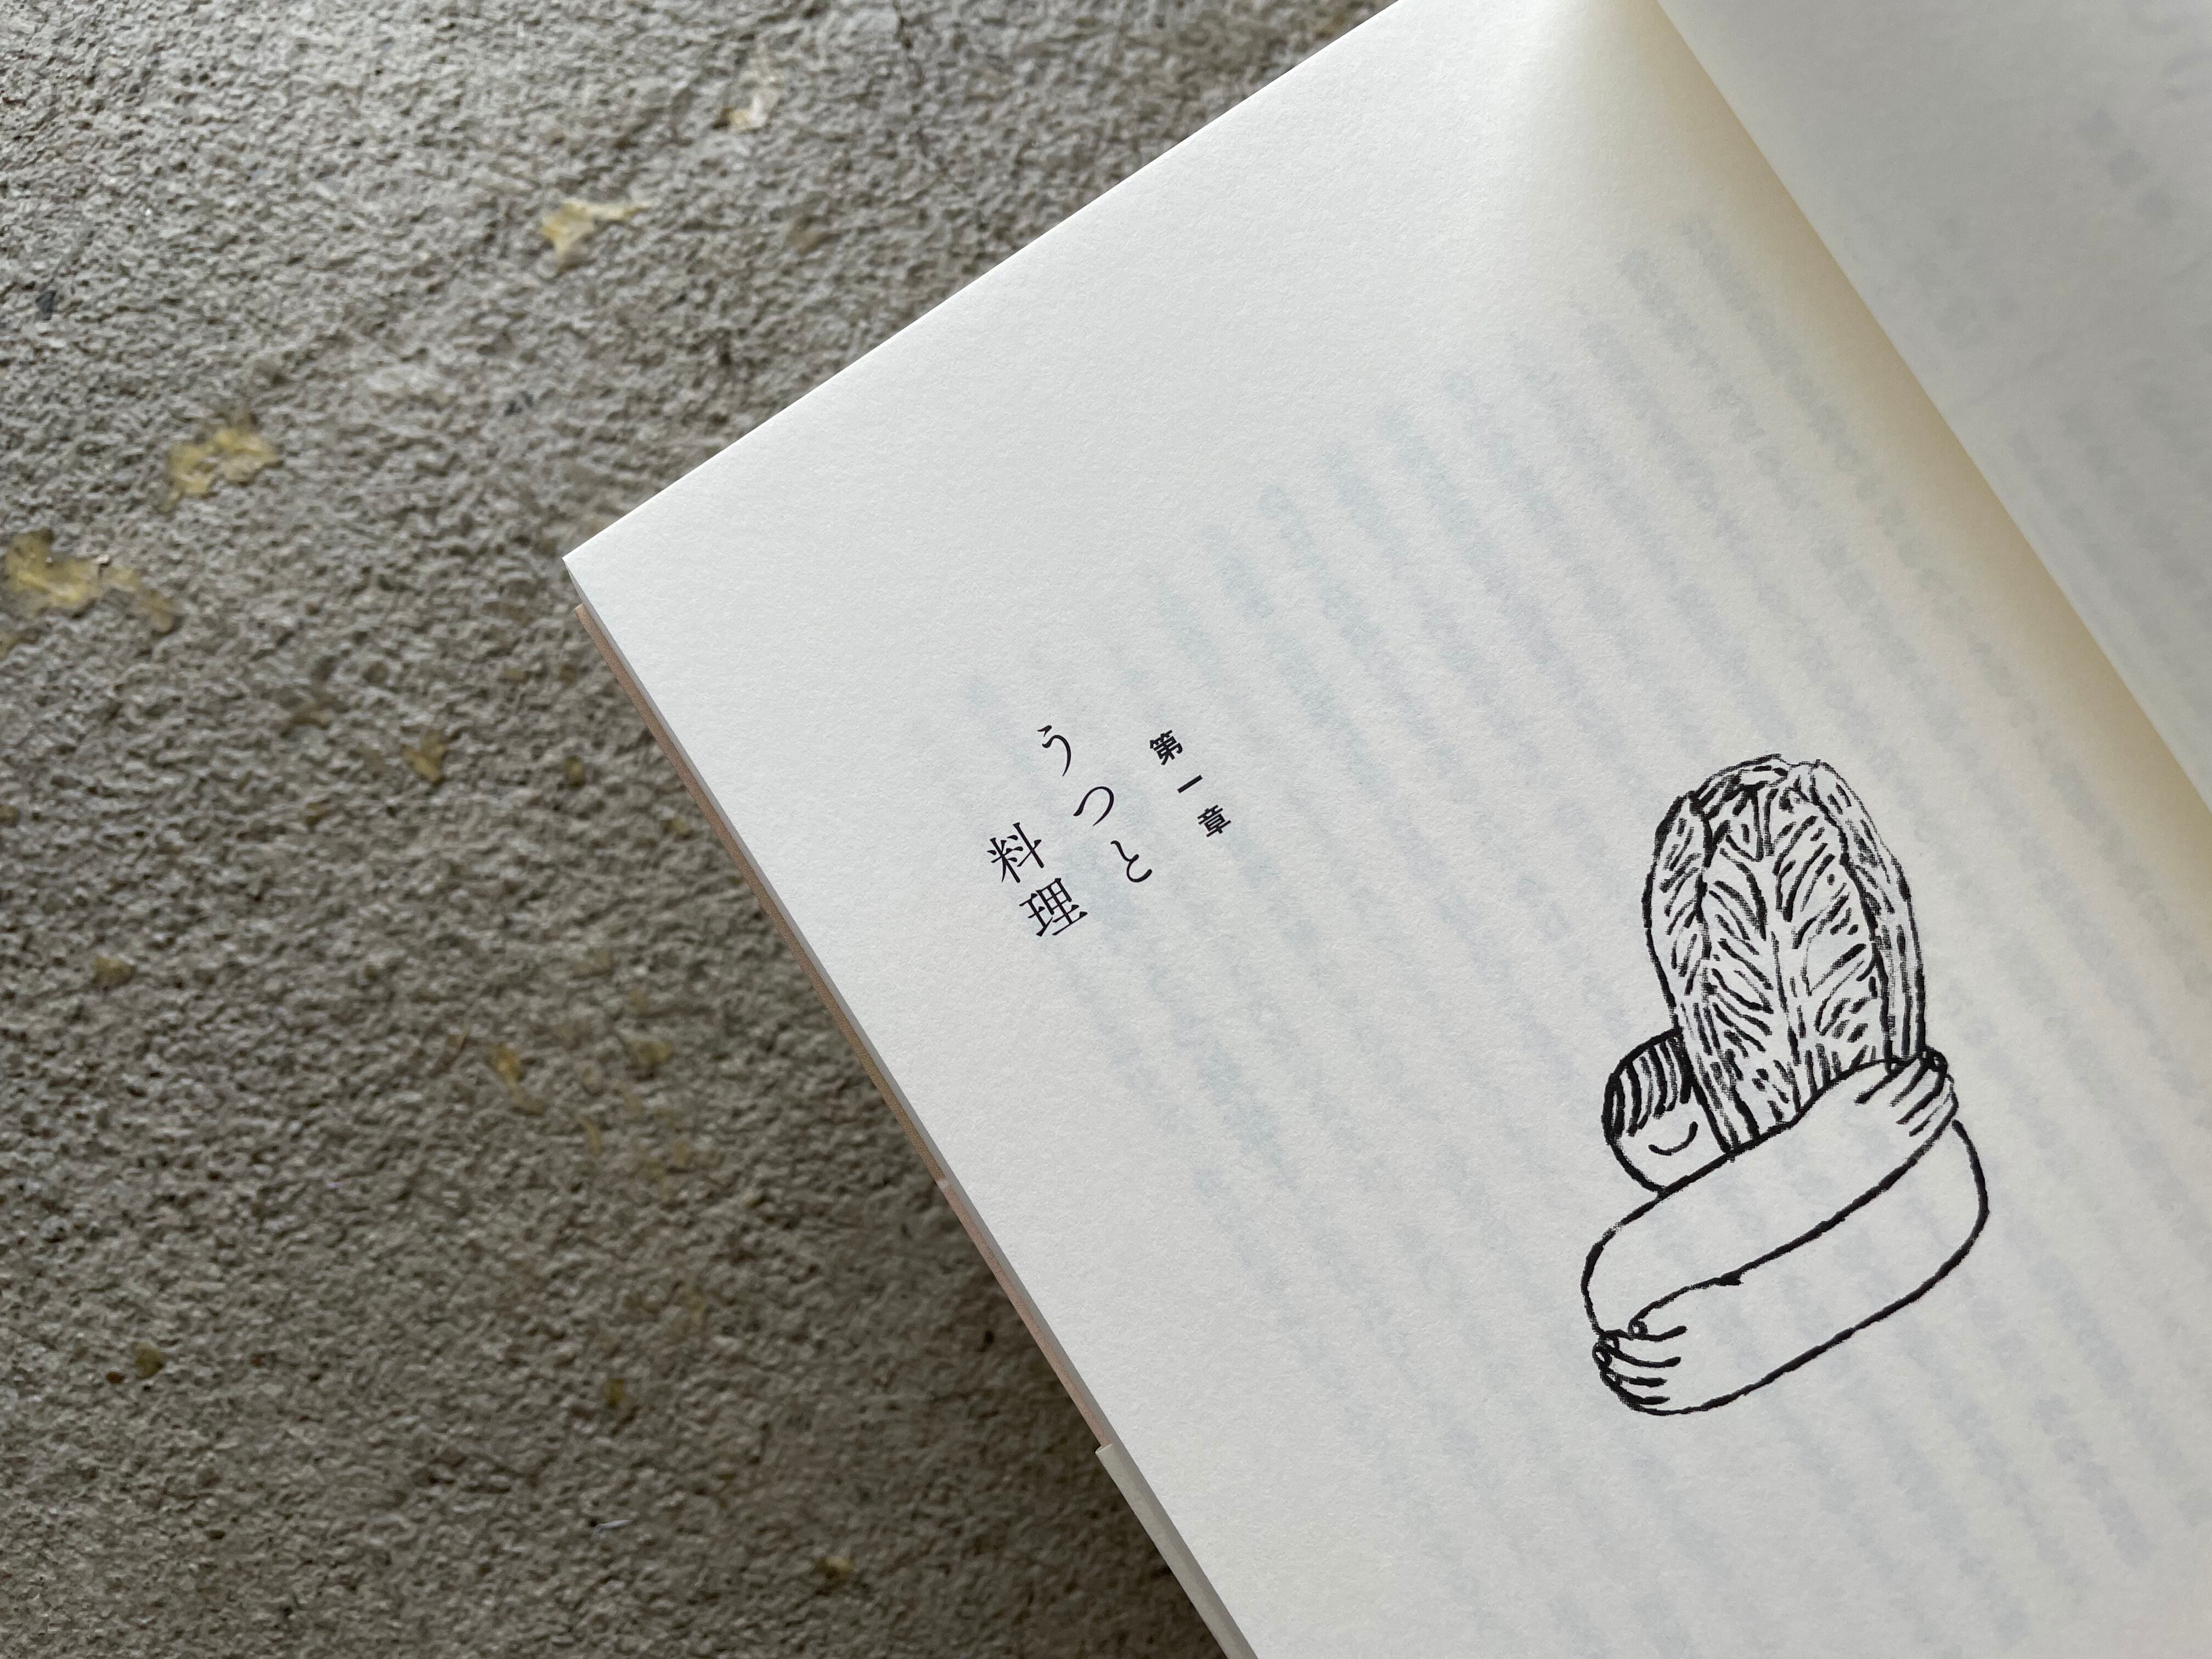 第一章
うつと
料理